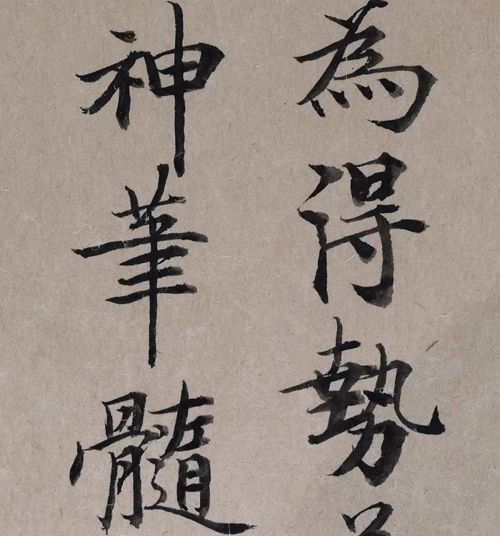 為得勢
神筆髓